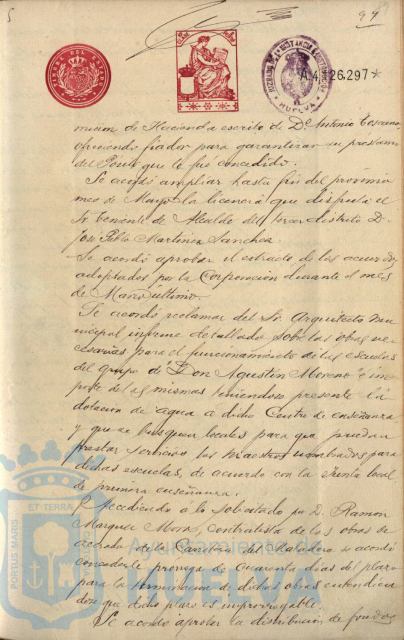 99
TIMBRE DEL ESTADO
HUELVA
A.4,126.297*
mision de Hacienda escrito de D. Antonio
ofreciendo fiador para garantizar su prestamo
del Posito que le fue concedido.
Se acordó ampliar hasta fin del proximo
mes de Mayo la licencia que disfruta el
Sr. teniente de Alcalde del tercer distrito D.
José Pablo Martinez Sanchez
Se acordó aprobar el extracto de los acuerdos
adoptados por la Corporacion durante el mes
de Marzo último.
Se acordó reclamar del Sr. Arquitecto mu-
nicipal informe detallado sobre las obras ne-
cesarias para el funcionamiento de las escuelas
del grupo de "Don Agustin Moreno" é im-
porte de las mismas teniendo presente la
dotacion de agua a dicho Centro de enseñanza
y que se busquen locales para que puedan
prestar servicios los maestros nombrados para
dichas escuelas, de acuerdo con la Junta local
de primera enseñanza.
Accediendo á lo solicitado por D. Ramon
Marquez Mora, contratista de las obras de
acerado de la Carretera del Matadero se acordó
concederle prorroga de cuarenta dias del plazo
para la terminacion de dichas obras entendien-
don que dicho plazo es improrrogable.
Se acordó aprobar la distribucion de fondos
PORTUS MARIS ET TERRAE
Ayuntamiento de
HUELVA